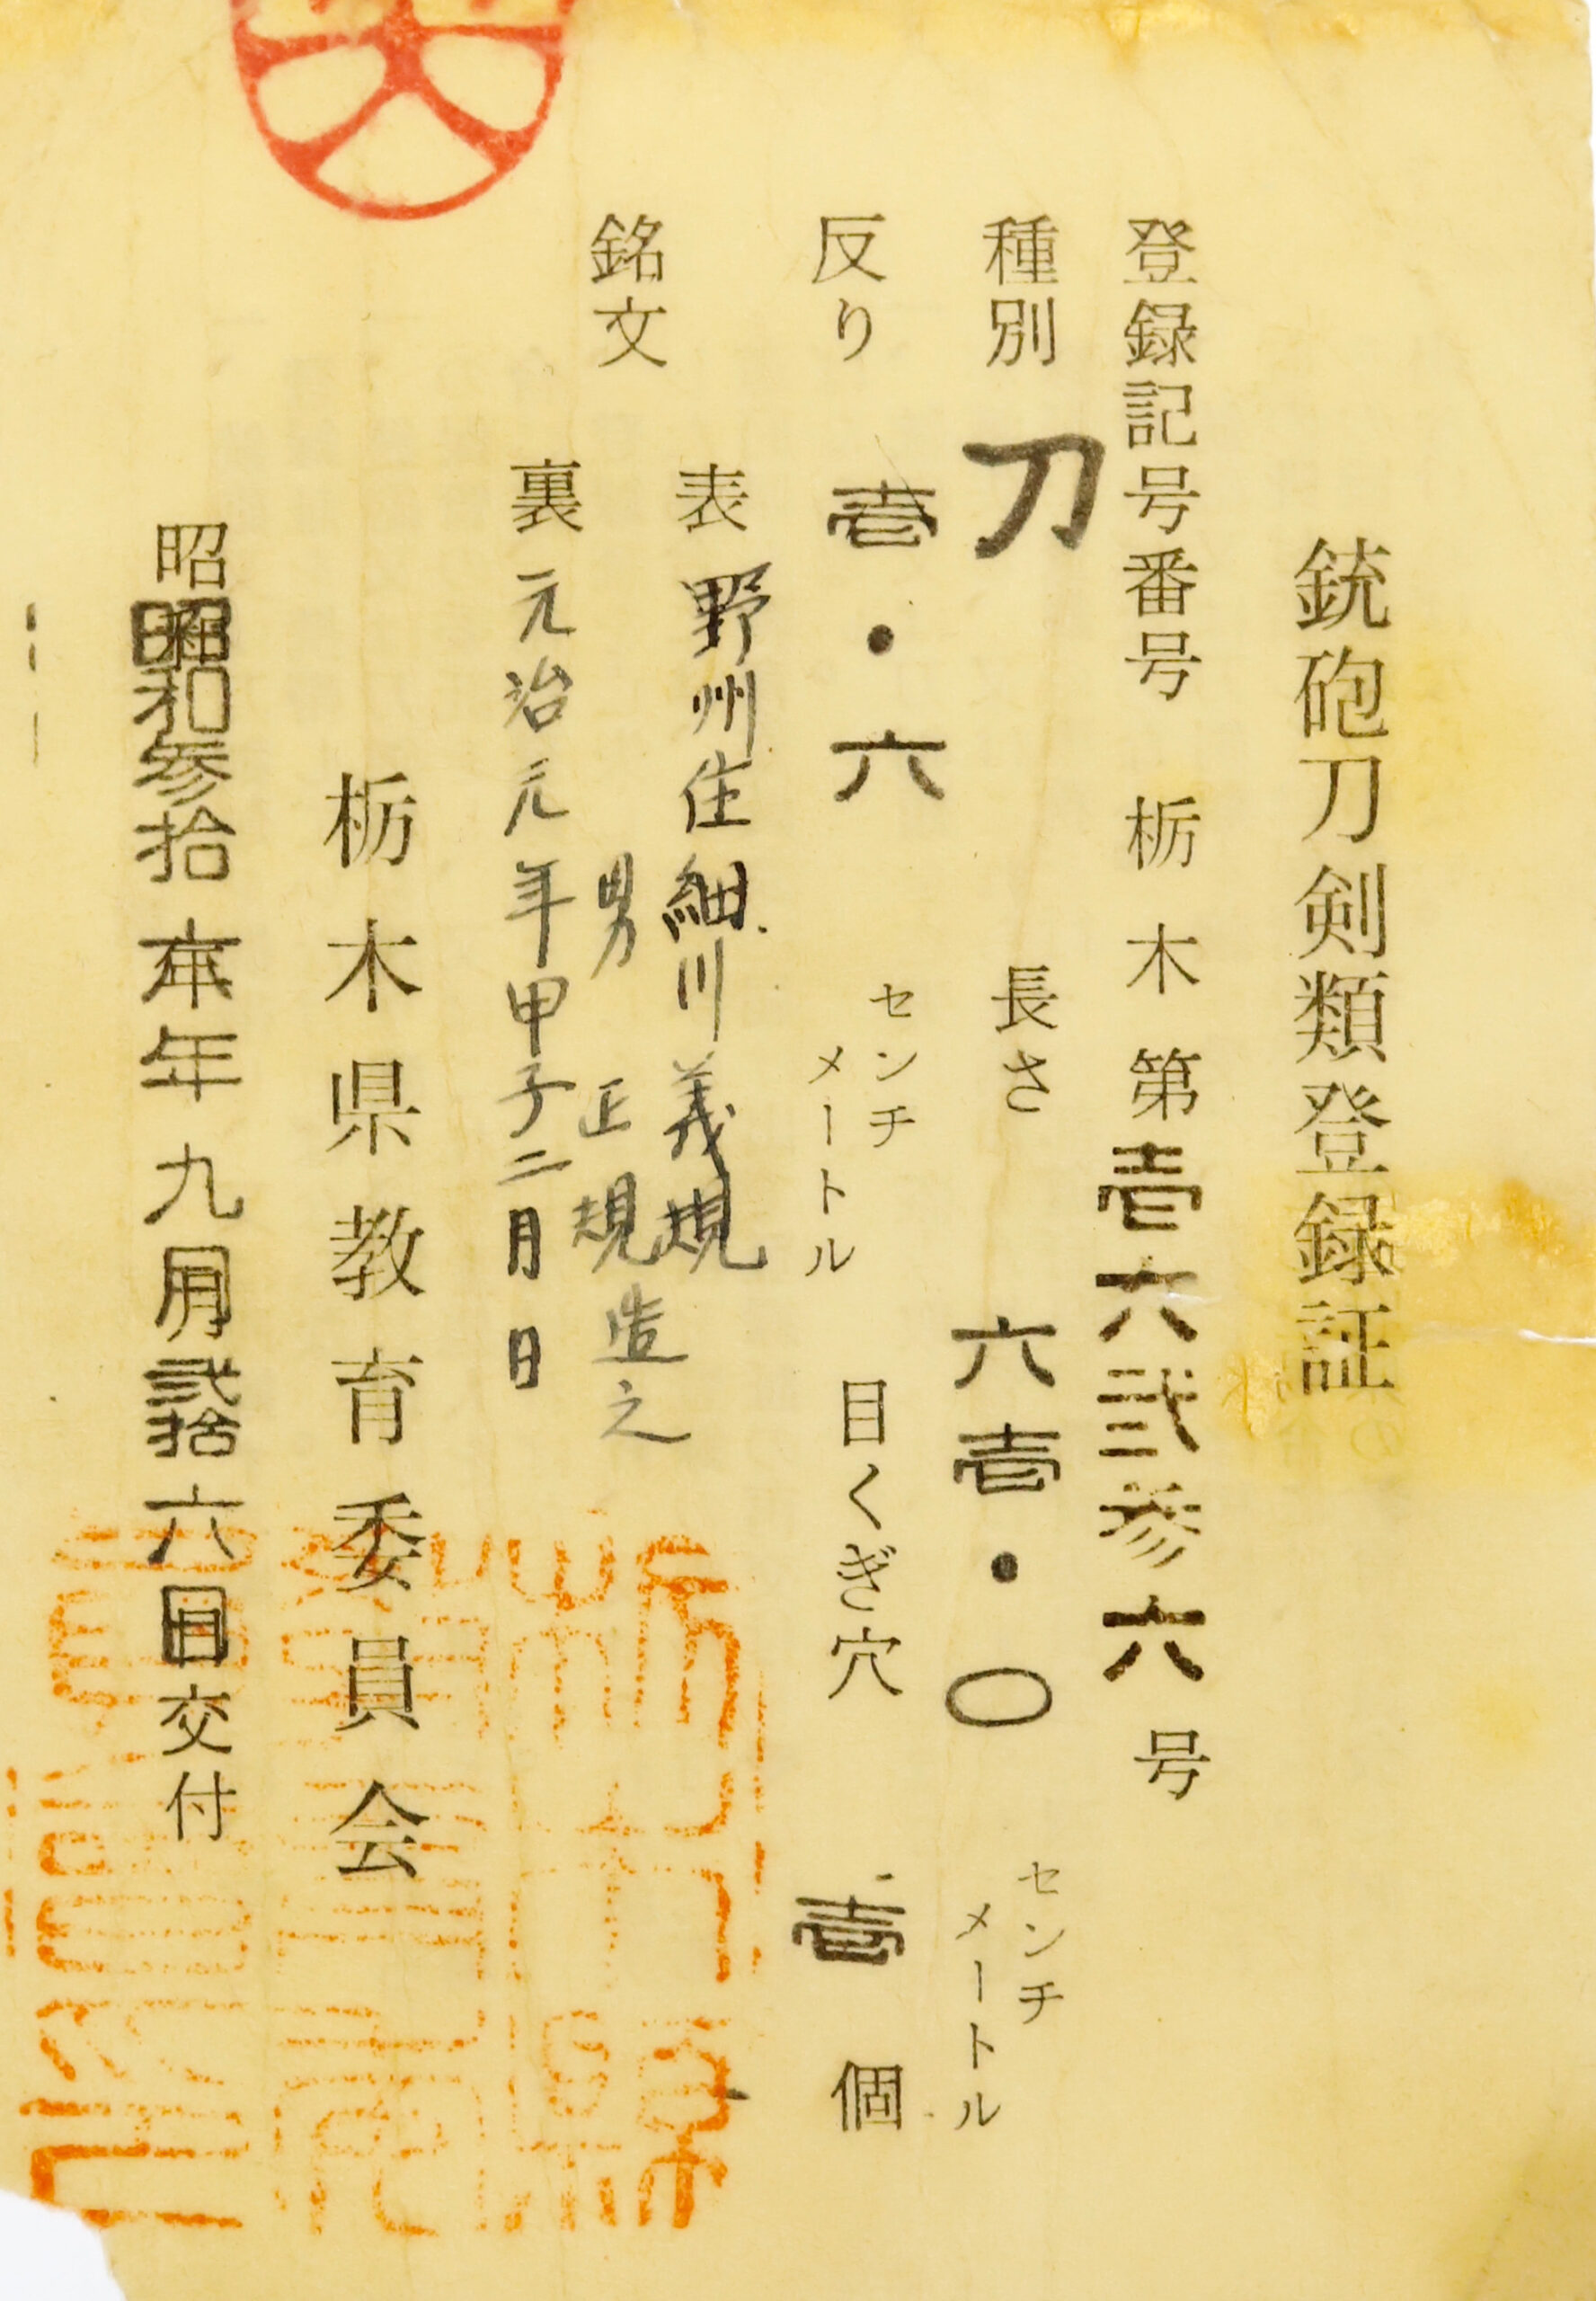 銃砲刀剣類登録証
登録記号番号 栃木 第壱六弐参六号
種別 刀 長さ 六壱・〇 センチメートル
反り 壱・六 センチメートル 目くぎ穴 壱 個
銘文
表 野州住細川義規
男 正規造之
裏 元治元年甲子二月日
栃木県教育委員会
昭和参拾 年九月弐拾六日交付